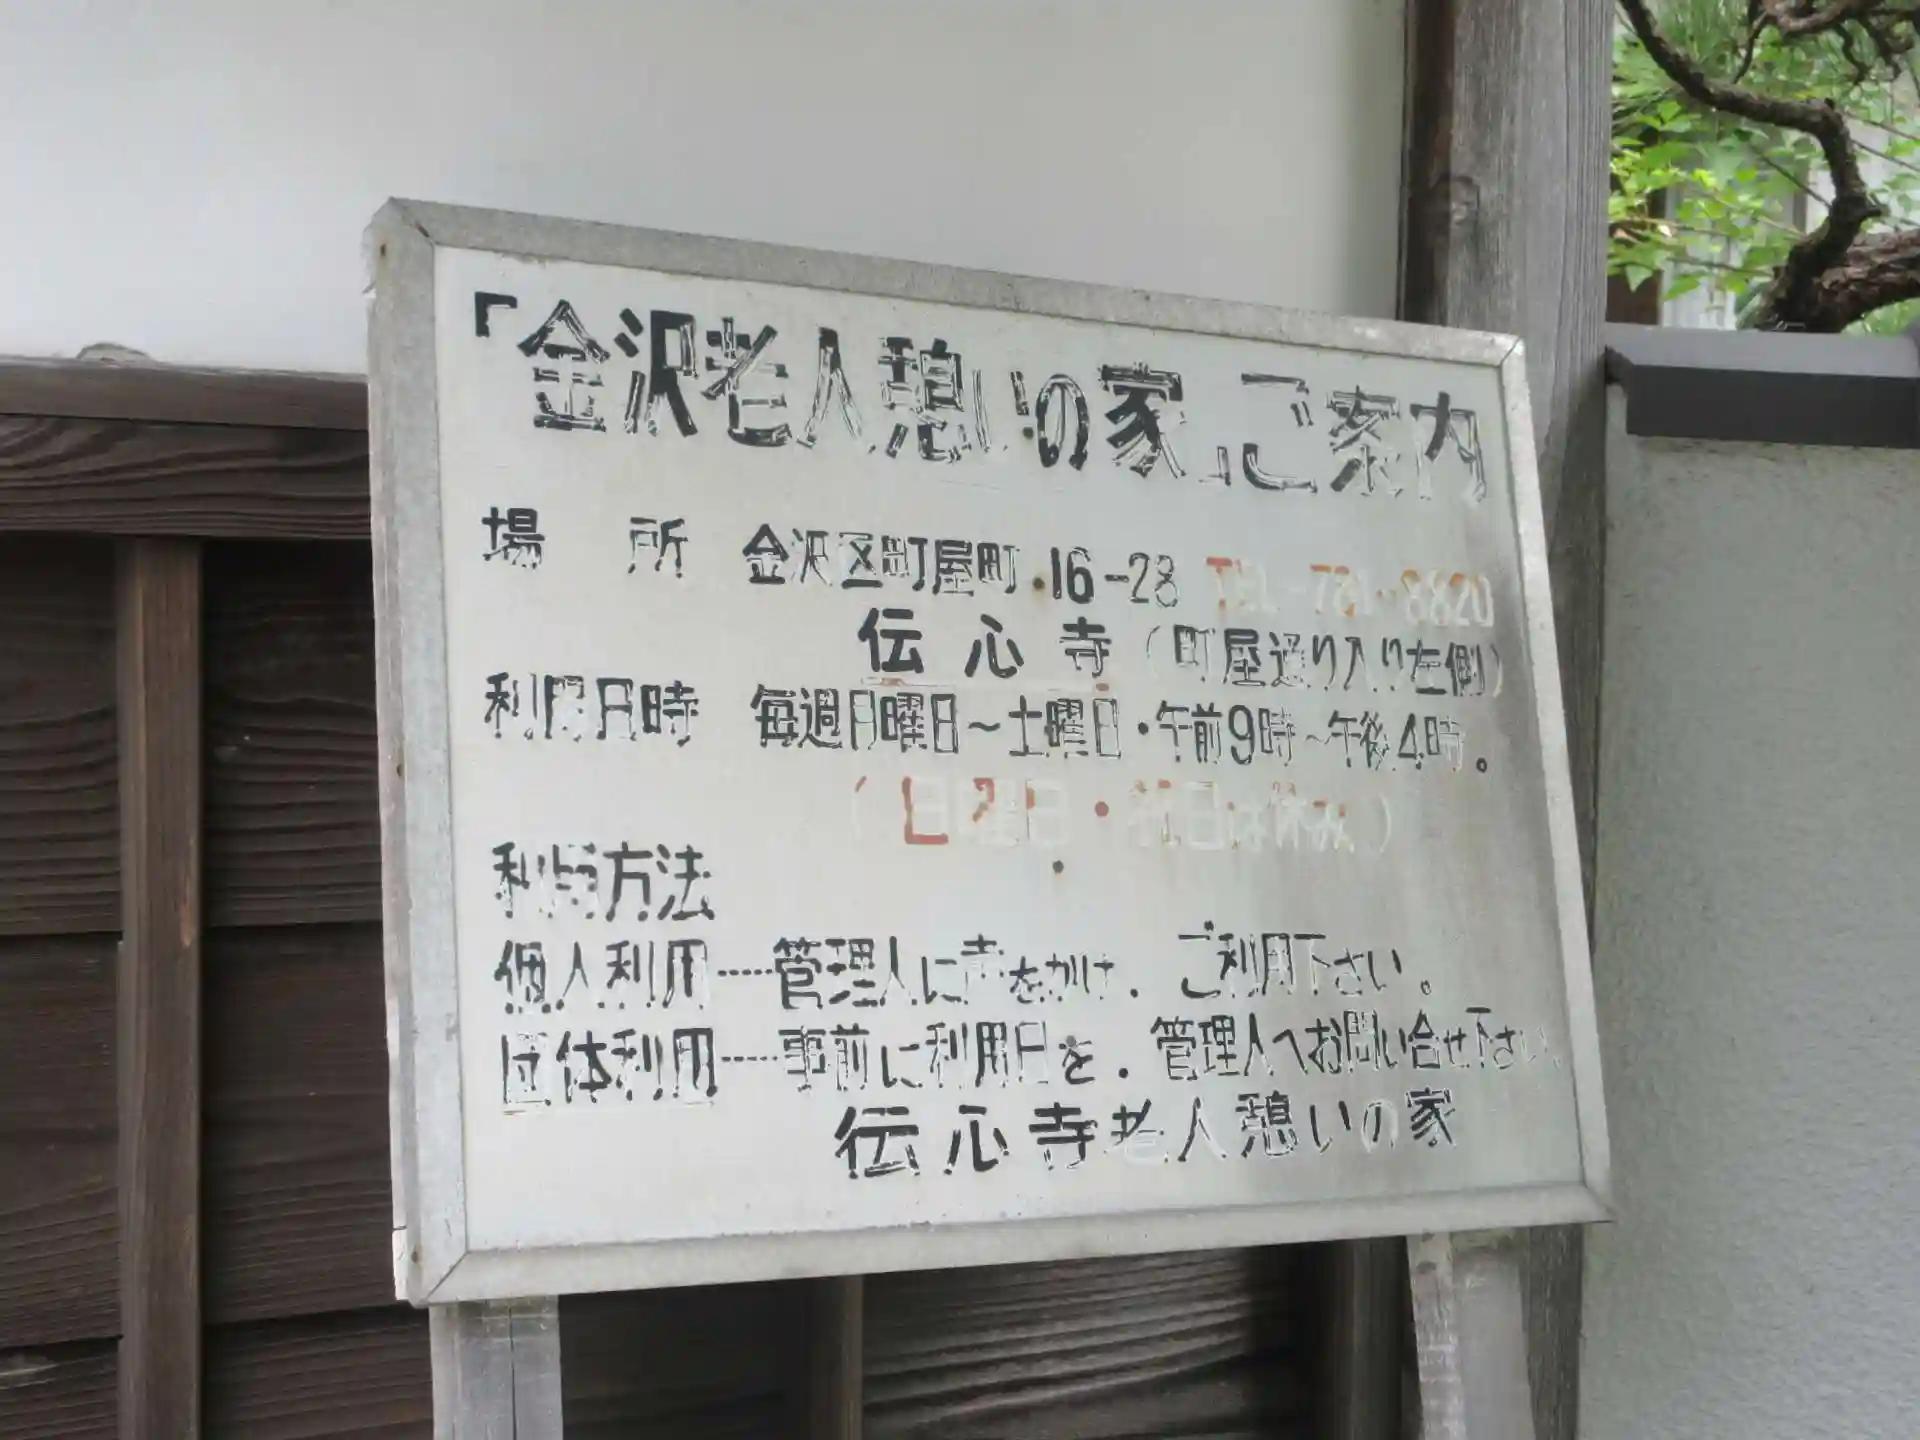 「金沢老人憩いの家」ご案内
場 所 金沢区町屋町・16-28 TEL-781-8820
伝心寺(町屋通り入り左側)
利用日時 毎週月曜日~土曜日・午前9時~午後4時。
(日曜日・祝日は休み)
利用方法
個人利用……管理人に声をかけ.ご利用下さい。
団体利用……事前に利用日を.管理人へお問い合せ下さい.
伝心寺老人憩いの家